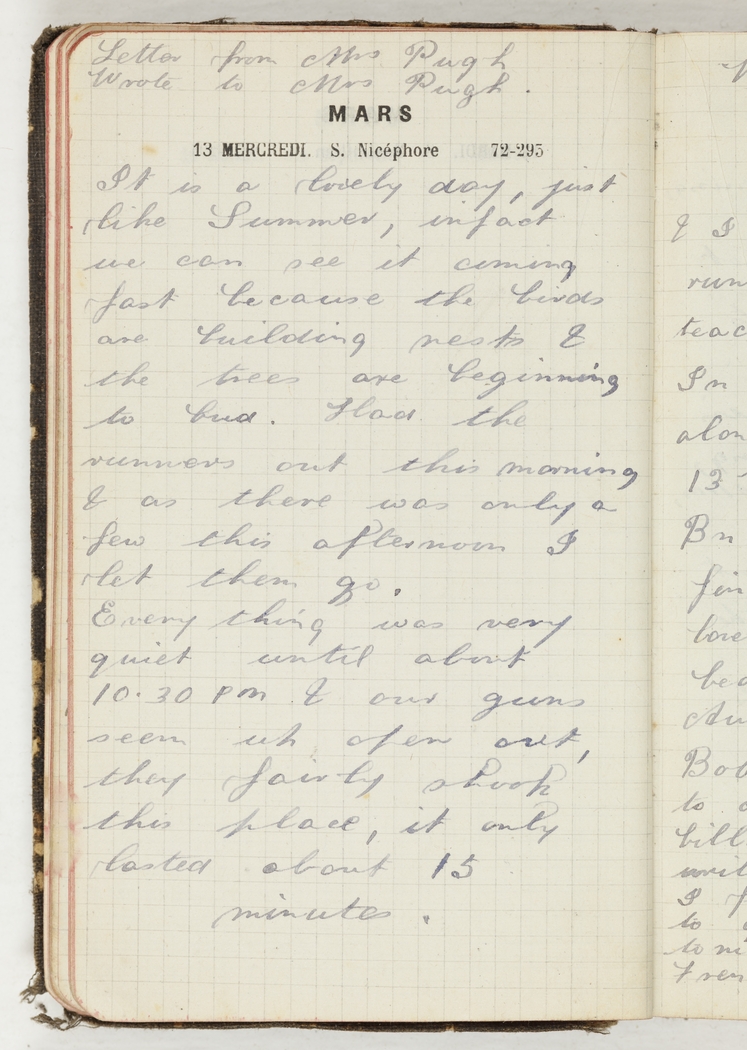 Letter from Mrs Pugh
Wrote to Mrs Pugh.
MARS
13 MERCREDI. S. Nicéphore 72-293
It is a lovely day, just
like Summer, infact
we can see it coming
fast because the birds
are building nests &
the trees are beginning
to bud. Had the
runners out this morning
& as there was only a
few this afternoon I
let them go.
Every thing was very
quiet until about
10.30 PM & our guns
seem open out,
they fairly shook
this place, it only
lasted about 15
minutes.
& I
run
teac
In
alon
13
Bn
fin
love
bea
Au
Bob
to
bill
writ
I f
to
to ni